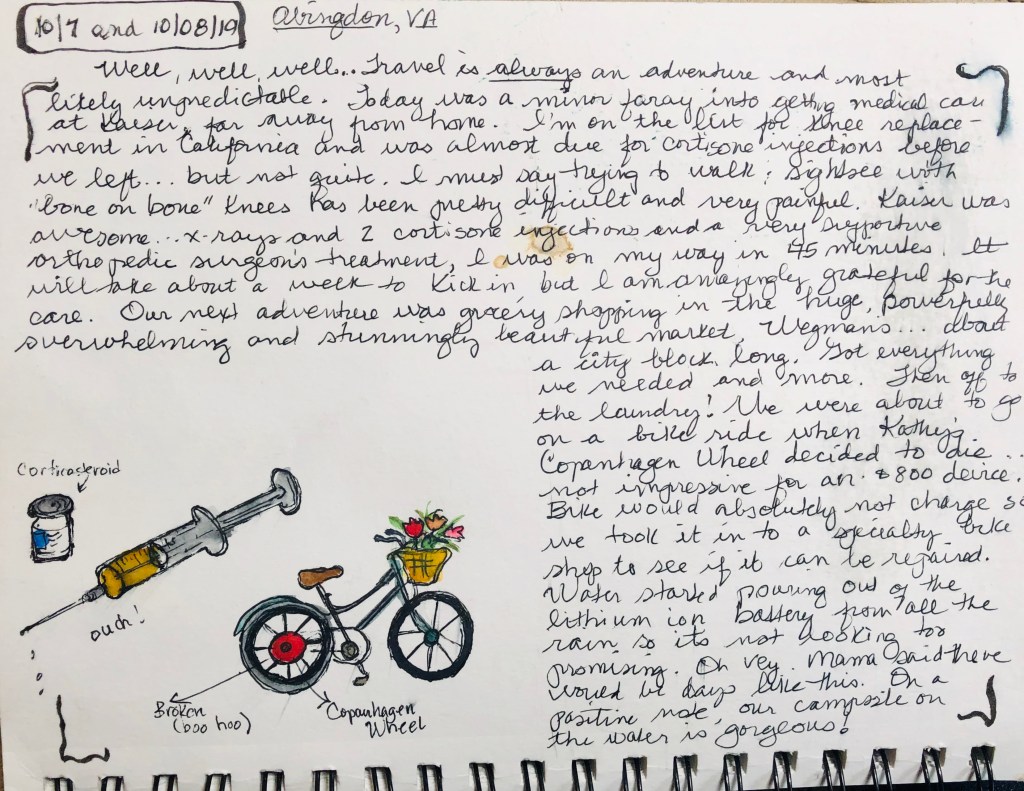 10/7 and 10/08/19
Abingdon, VA
Well, well, well... Travel is always an adventure and most
likely unpredictable. Today was a minor foray into getting medical care
at Kaiser, far away from home. I'm on the list for knee replace-
ment in California and was almost due for cortisone injections before
we left... but not quite. I must say trying to walk & sightsee with
"bone on bone" knees has been pretty difficult and very painful. Kaiser was
awesome... x-rays and 2 cortisone injections and a very supportive
orthopedic surgeon's treatment, I was on my way in 45 minutes. It
will take about a week to kick in, but I am amazingly grateful for the
care. Our next adventure was grocery shopping in the huge, powerfully
overwhelming and stunningly beautiful market, Wegman's... about
a city block long. Got everything
we needed and more. Then off to
the laundry! We were about to go
on a bike ride when Kathy's
Copenhagen Wheel decided to die...
not impressive for an $800 device.
Bike would absolutely not charge so
we took it in to a specialty bike
shop to see if it can be repaired.
Water started pouring out of the
lithium ion battery from all the
rain, so it's not looking too
promising. Oh vey. Mama said there
would be days like this. On a
positive note, our campsite on
the water is gorgeous!
Corticosteroid
ouch!
Broken
(boo hoo)
Copenhagen
Wheel